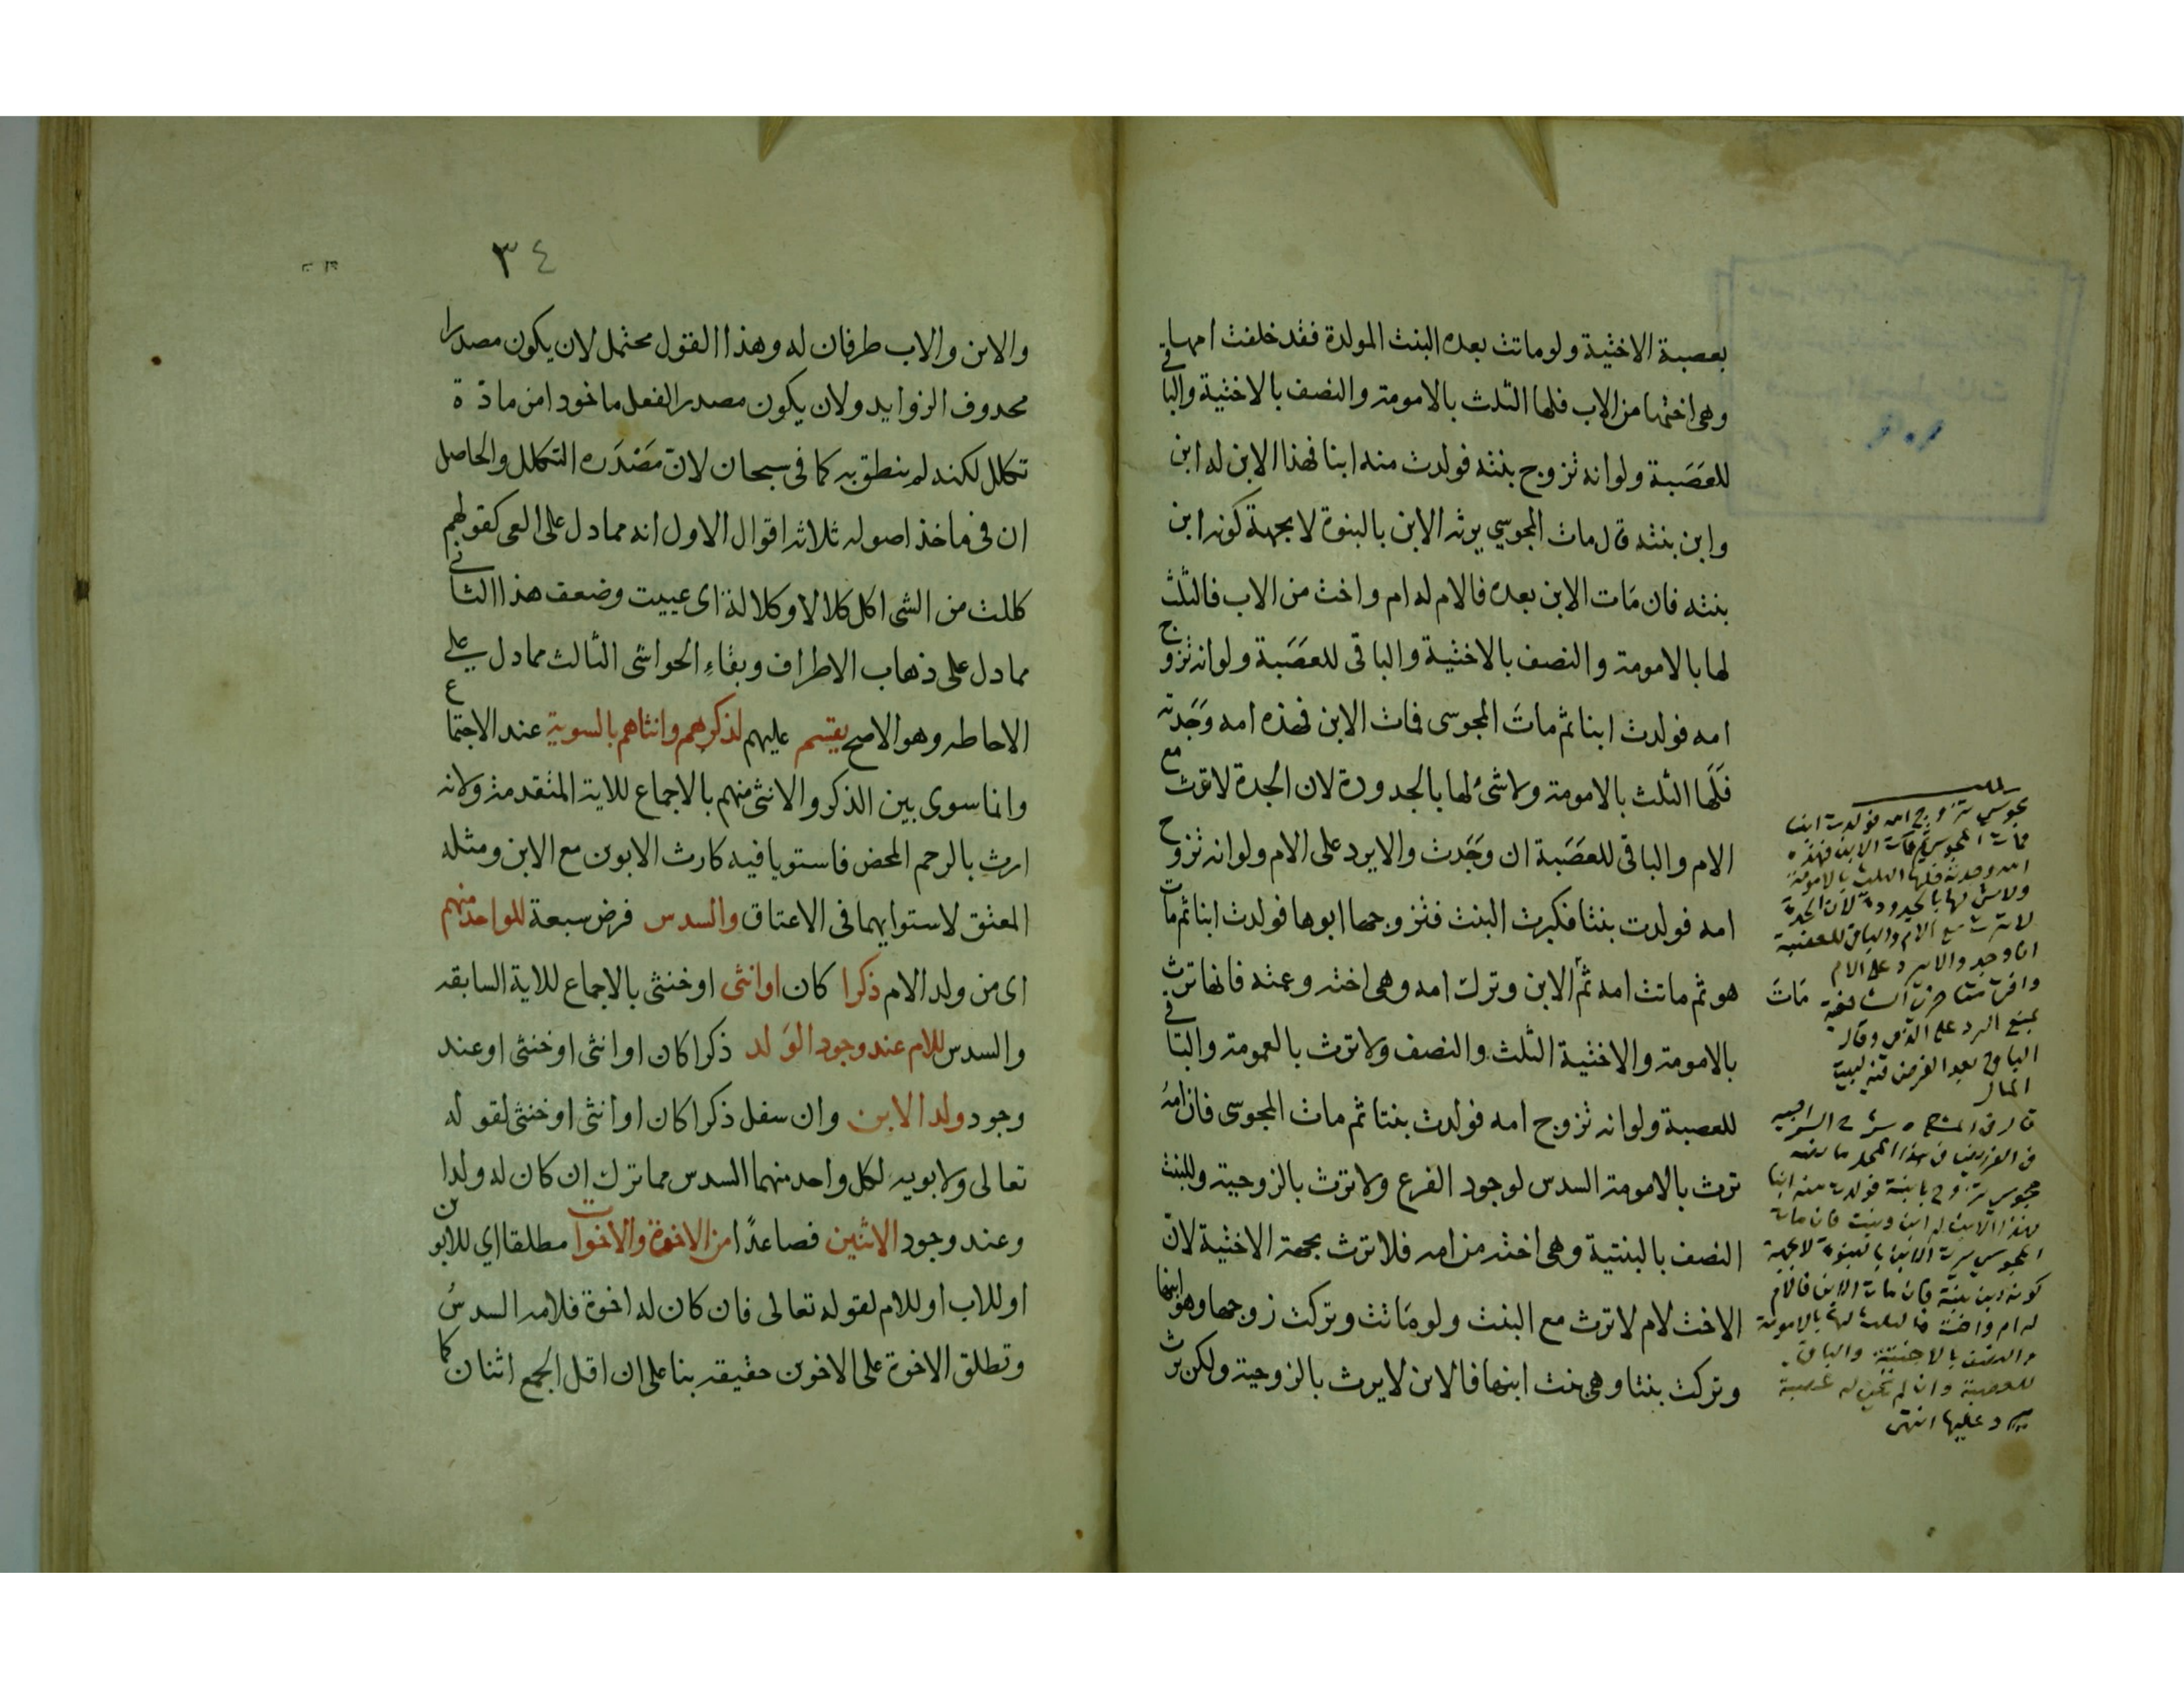 بعصبة الاختية ولو ماتت بعده البنت المولدة فقد خلفت امها
وهى اختها من الاب فلها الثلث بالامومة والنصف بالاختية والباقى
للعَصَبة ولو انه تزوج بنته فولدت منه ابنا فهذا الابن له ابن
وابن بنته قال مات المجوسي يرثه الابن بالبنوة لا بجهة كونه ابن
بنته فان مَات الابن بعده فالام له ام واخت من الاب فالثلث
لها بالامومة والنصف بالاختية والباقى للعَصَبة ولو انه تزوج
امه فولدت ابنا ثم ماتَ المجوسى فمات الابن فهذه امه وَجَدته
فَلَها الثلث بالامومة ولا شئ لها بالجدودة لان الجدة لا ترث مع
الام والباقى للعَصَبة ان وَجَدت والايرد على الام ولو انه تزوج
امه فولدت بنتا فكبرت البنت فتزوجها ابوها فولدت ابنا ثم مات
هو ثم ماتت امه ثم الابن وترك امه وهى اخته وعمته فانها ترث
بالامومة والاختية الثلث والنصف ولا ترث بالعمومة والباقى
للعصبة ولو انه تزوج امه فولدت بنتا ثم مات المجوسى فان امهُ
ترث بالامومة السدس لوجود الفرع ولا ترث بالزوجية وللبنت
النصف بالبنتية وهى اخته من امه فلا ترث بجهة الاختية لانّ
الاخت لام لا ترث مع البنت ولو مَاتت وتركت زوجها وهو ابنها
وتركت بنتا وهى بنت ابنها فالابن لا يرث بالزوجية ولكن يرث
مجوسي تزوج امه فولدت ابنا
فمات المجوسي ثم مات الابن فهذه
امه وجدته فلها الثلث بالامومة
ولا شئ لها بالجدودة لان الجدة
لا ترث مع الام والباقى للعصبة
ان وجد والا يرد على الام
بمنع الرد على الام وقال
الباقى بعد الفرض لبيت
المال
مجوسي تزوج بابنة فولدت منه ابنا
فهذا الابن له ابن وبنت فان مات
المجوسي يرث الابن بالبنوة لا بجهة
كونه ابن بنته فان مات الابن فالام
له ام واخت فالثلث لها بالامومة
والنصف بالاختية والباقى
للعصبة وان لم يكن له عصبة
يرد عليها انتهى
٣٤
والابن والاب طرفان له وهذا القول محتمل لان يكون مصدرا
محذوف الزوايد ولان يكون مصدر الفعل ماخوذا من مادّة
تكلل لكنه لم ينطق به كما فى سبحان لانّ مَصْدَره التكلل والحاصل
ان فى ماخذ اصوله ثلاثة اقوال الاول انه مما دل على العى كقولهم
كللت من الشى اكل كلالا وكلالة اى عييت وضعف هذا الثانى
مما دل على ذهاب الاطراف وبقاءِ الحواشى الثالث مما دل على
الاحاطه وهو الاصح يقسم عليهم لذكرهم وانثاهم بالسوية عند الاجتماع
وانما سوى بين الذكر والانثى منهم بالاجماع للاية المتقدمة ولانه
ارث بالرحم المحض فاستويا فيه كارث الابوين مع الابن ومثله
المعتق لاستوايهما فى الاعتاق والسدس فرض سبعة للواحد منهم
اى من ولد الام ذكرا كان او انثى او خنثى بالاجماع للاية السابقه
والسدس للام عند وجود الوَلد ذكرا كان او انثى او خنثى او عند
وجود ولد الابن وان سفل ذكرا كان او انثى او خنثى لقوله
تعالى ولابويه لكل واحد منهما السدس مما ترك ان كان له ولدا
وعند وجود الاثنين فصاعدًا من الاخوة والاخوات مطلقا اي للابوين
او للاب او للام لقوله تعالى فان كان له اخوة فلامه السدسُ
وتطلق الاخوة على الاخوين حقيقه بنا على ان اقل الجمع اثنان كما